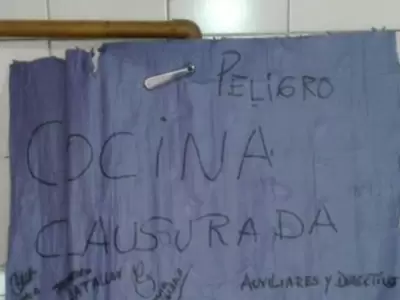 PELIGRO
COCINA
CLAUSURADA
NATALIA
AUXILIARES Y DIRECTIVO